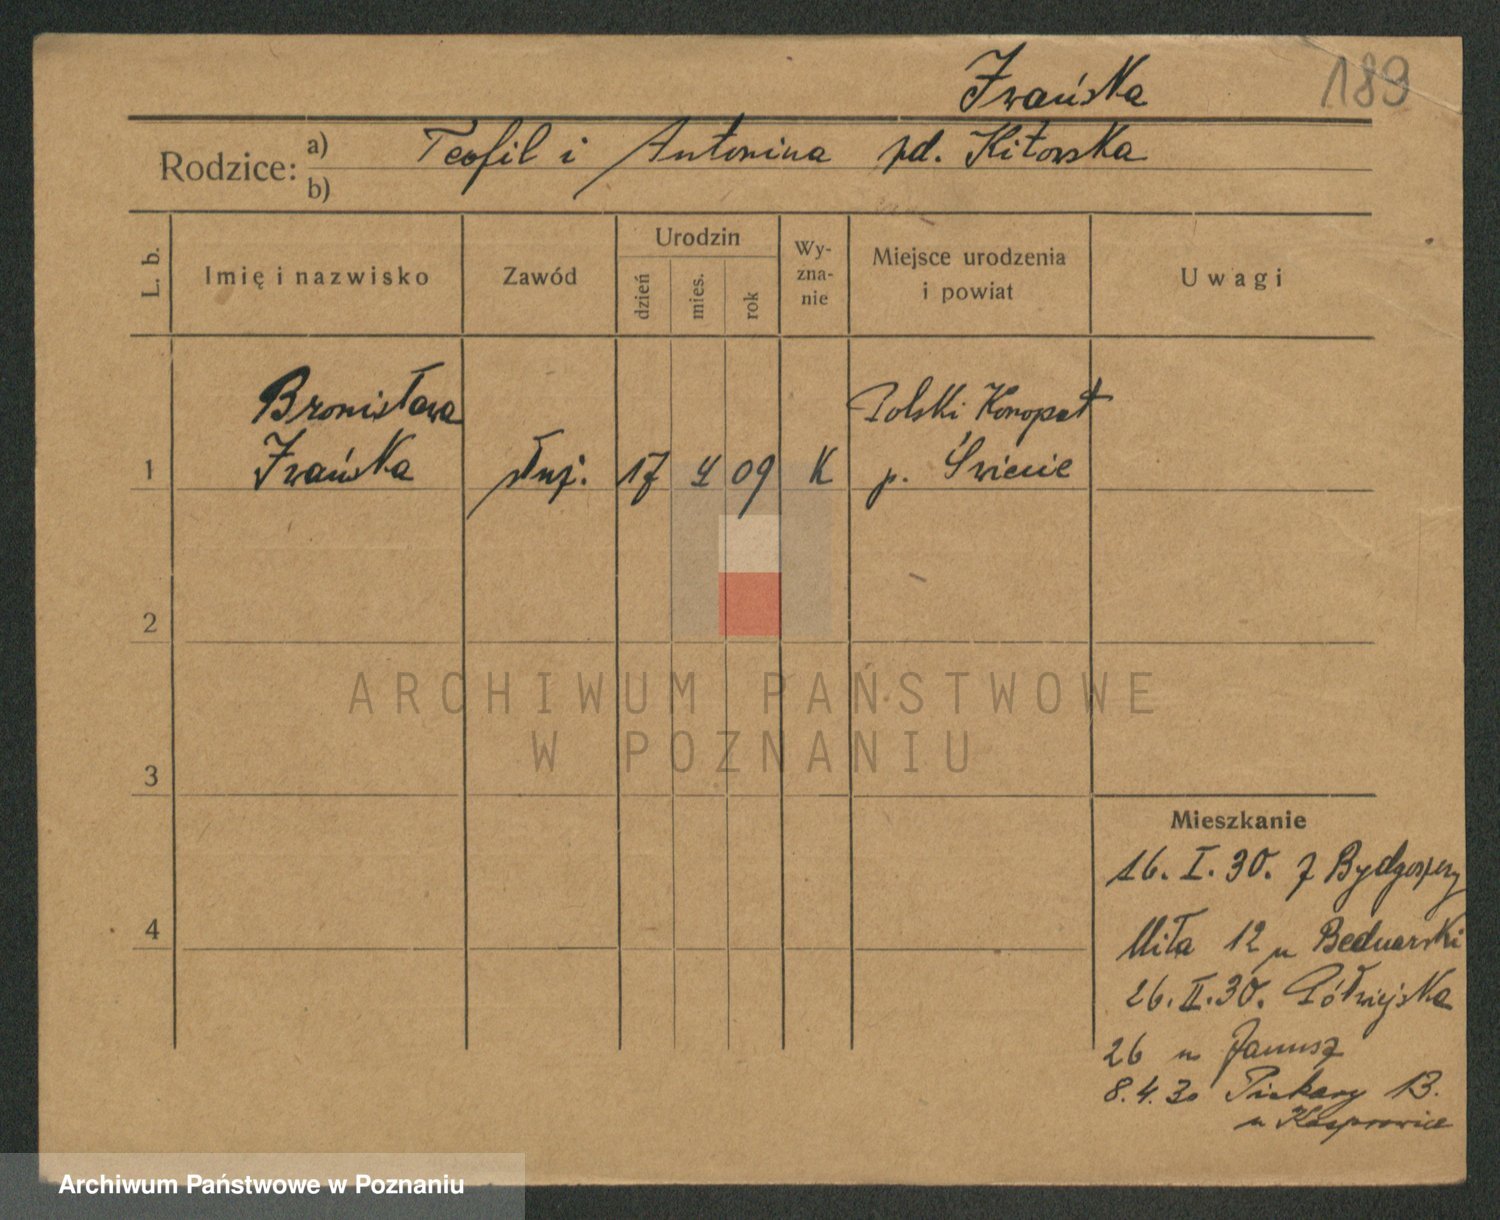 Iwańska
189
Rodzice: a) Teofil i Antonina zd. Kitowska
b)
L. b.
Imię i nazwisko
Zawód
Urodzin
dzień
mies.
rok
Wy-
zna-
nie
Miejsce urodzenia
i powiat
Uwagi
Bronisława Polski Konopat
1 Iwańska służ. 17 4 09 K p. Świecie
2
3
4
Mieszkanie
16. I. 30. z Bydgoszczy
Miła 12 u Bednarski
26. II. 30. Półwiejska
26 u Janusz
8. 4. 30 Piekary 13.
u Kasprowicz
ARCHIWUM PAŃSTWOWE
W POZNANIU
Archiwum Państwowe w Poznaniu